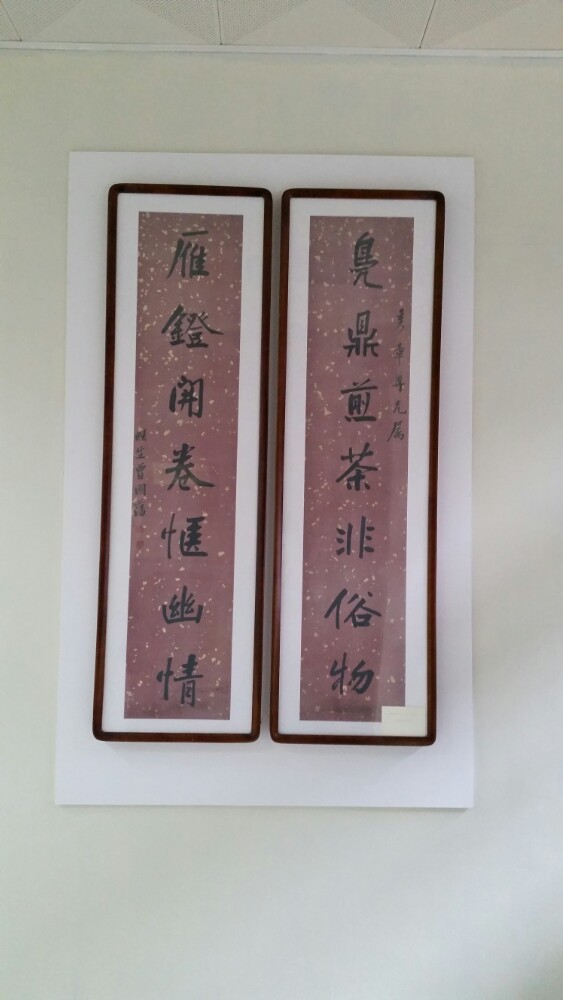 章尊兄屬
鳧鼎煎茶非俗物
雁鐙開卷愜幽情
滌生曾國藩